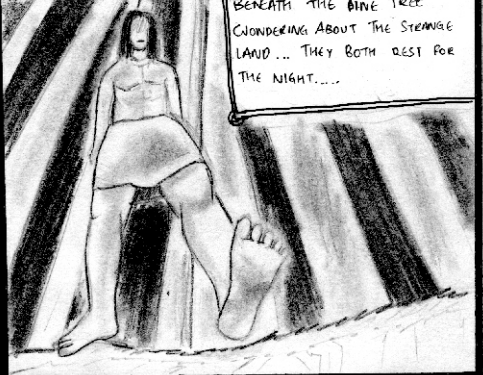 BENEATH THE PINE TREE
WONDERING ABOUT THE STRANGE
LAND... THEY BOTH REST FOR
THE NIGHT.....